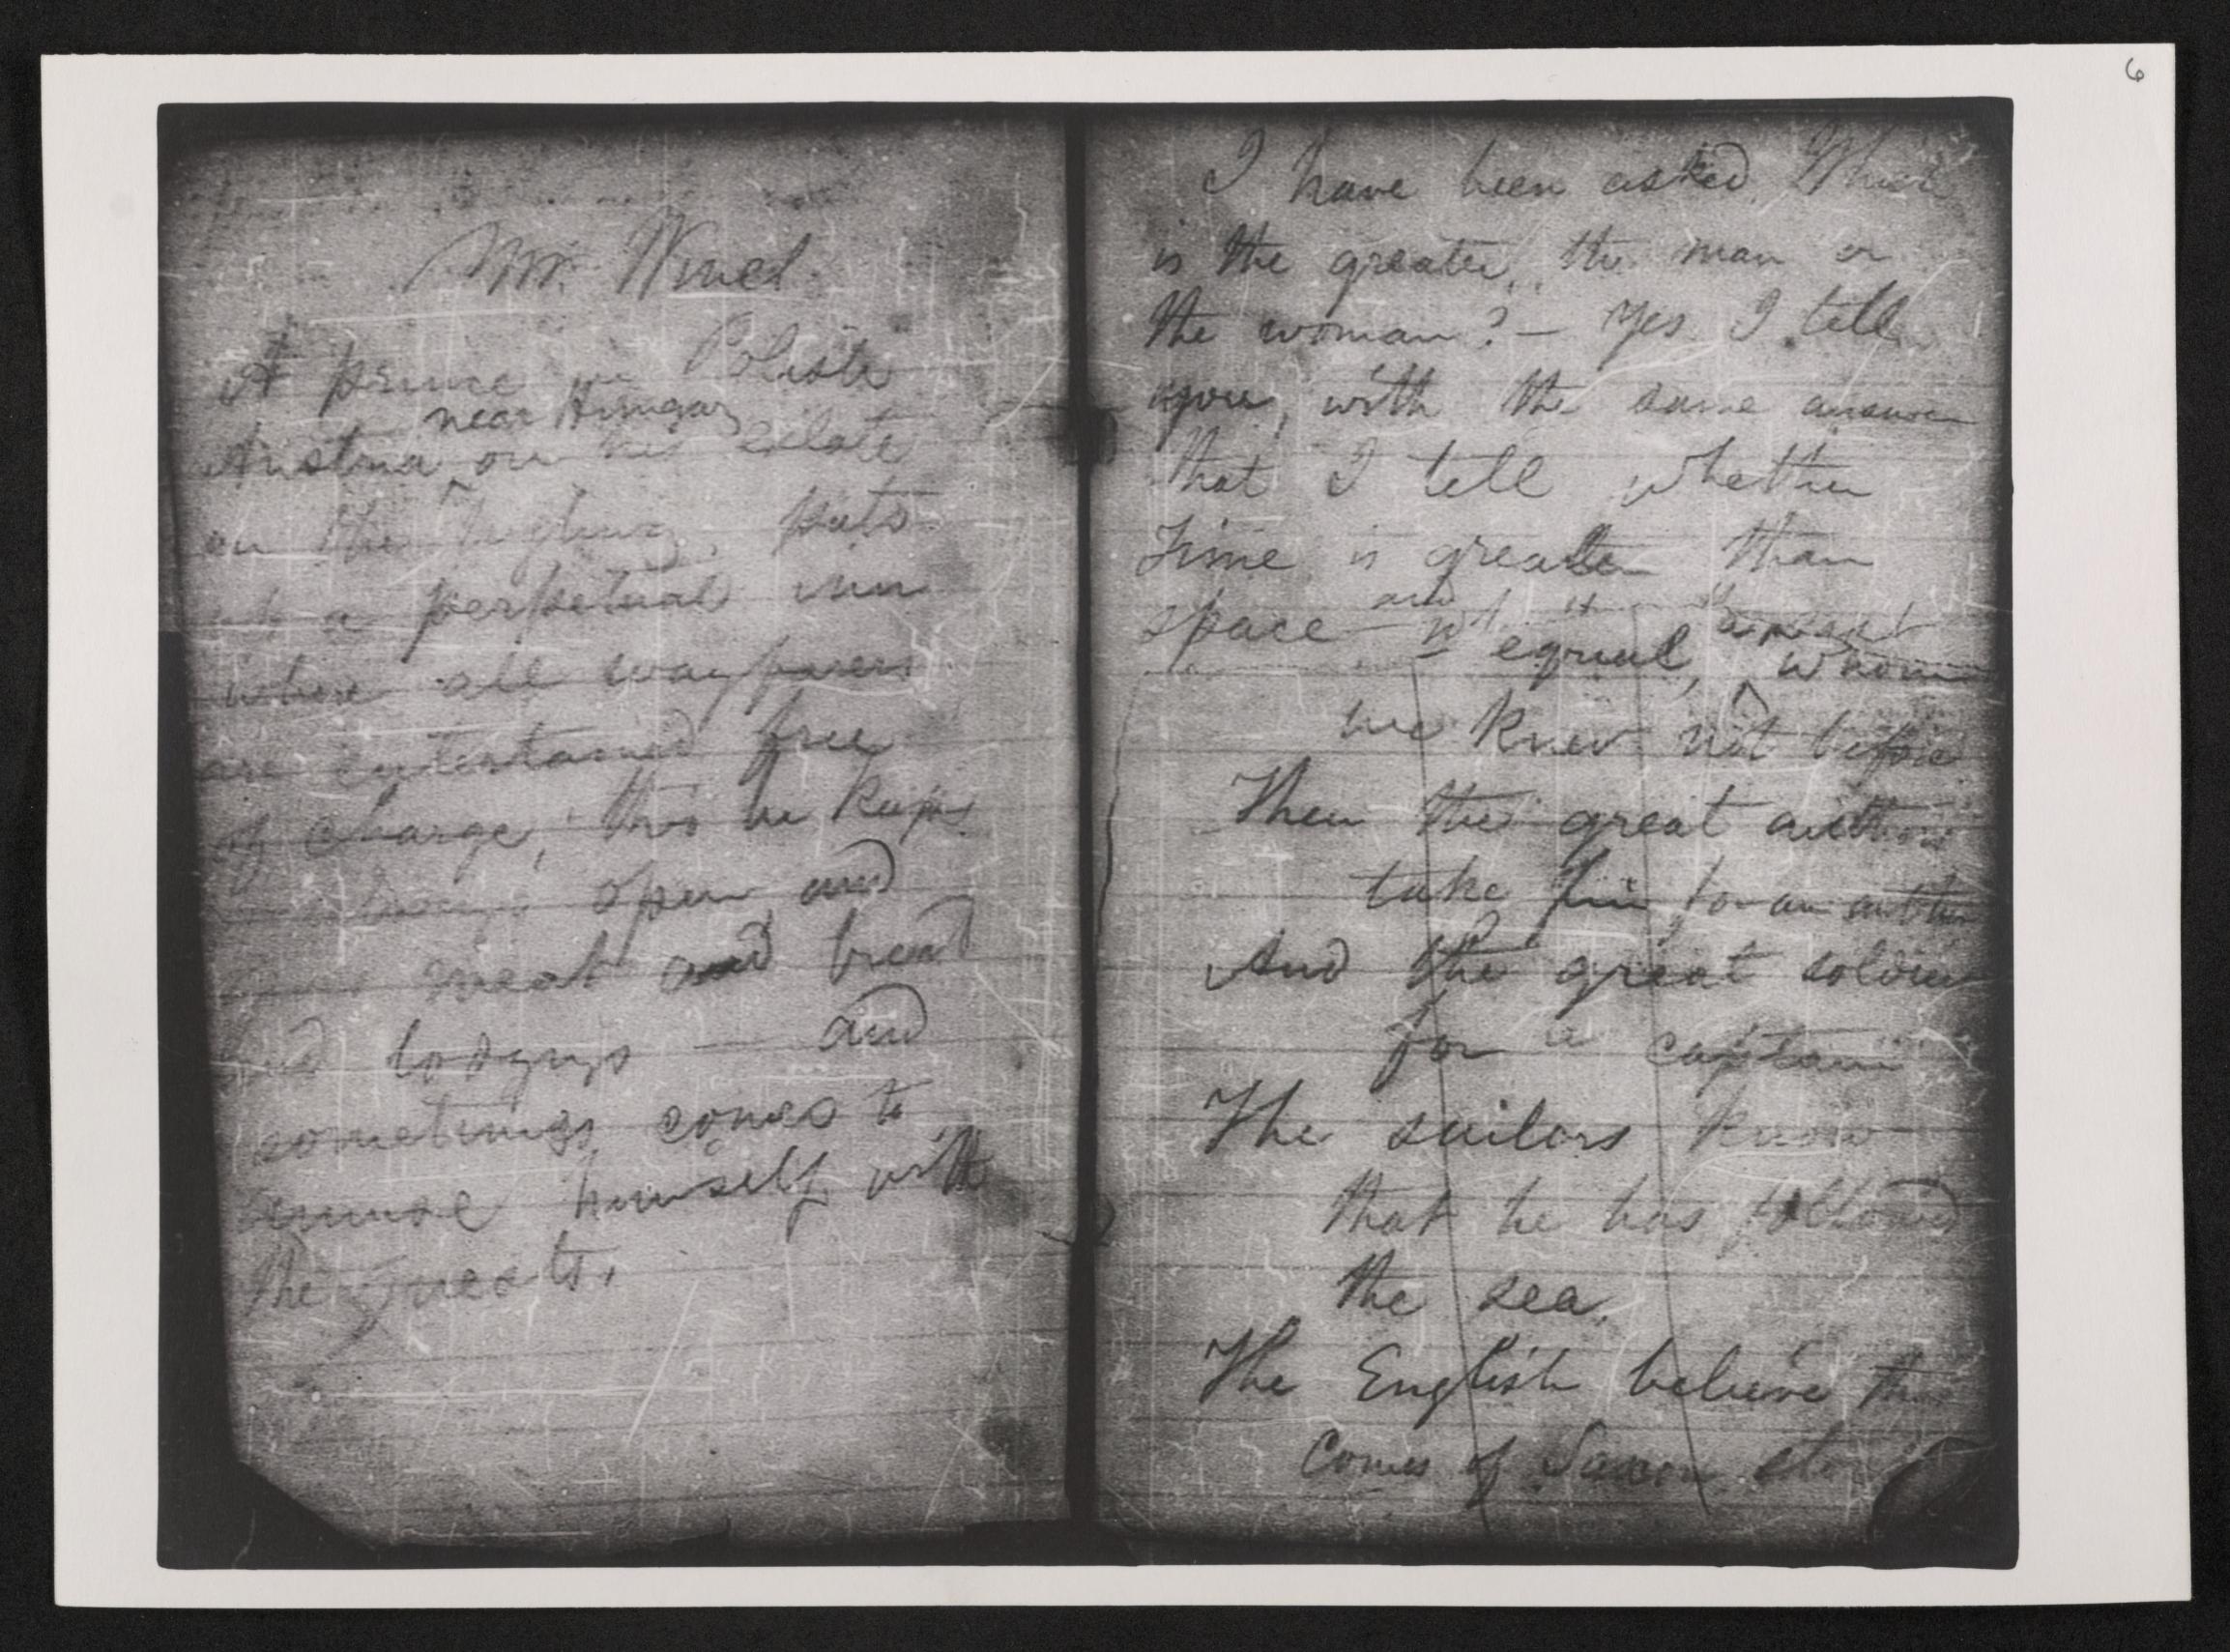 6
Mr. Wind
A prince in Polish
near Hungary
Austria on his estate
on the highway, puts
up a perpetual inn
where all wayfarers
are entertained free
of charge; this he keeps
always open and
gives meat and bread
and lodgings — and
sometimes comes to
amuse himself with
the guests.
I have been asked, Which
is the greater, the man or
the woman? — Yes I tell
you, with the same answer
that I tell whether
Time is greater than
space and
is equal, whom
we knew not before
Then the great authors
take him for an author
And the great soldiers
for a captain
The sailors know
that he has followed
the sea.
The English believe he
comes of Saxon stock